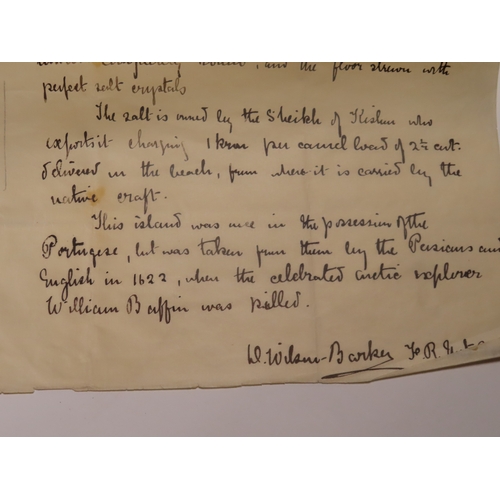 and the floor strewn with
perfect salt crystals
The salt is owned by the Sheikh of Kishm who
exports it charging 1 kran per camel load of 2½ cwt.
delivered on the beach, from where it is carried by the
native craft.
This island was once in the possession of the
Portugese, but was taken from them by the Persians and
English in 1622, when the celebrated arctic explorer
William Baffin was killed.
D. Wilson-Barker F.R.